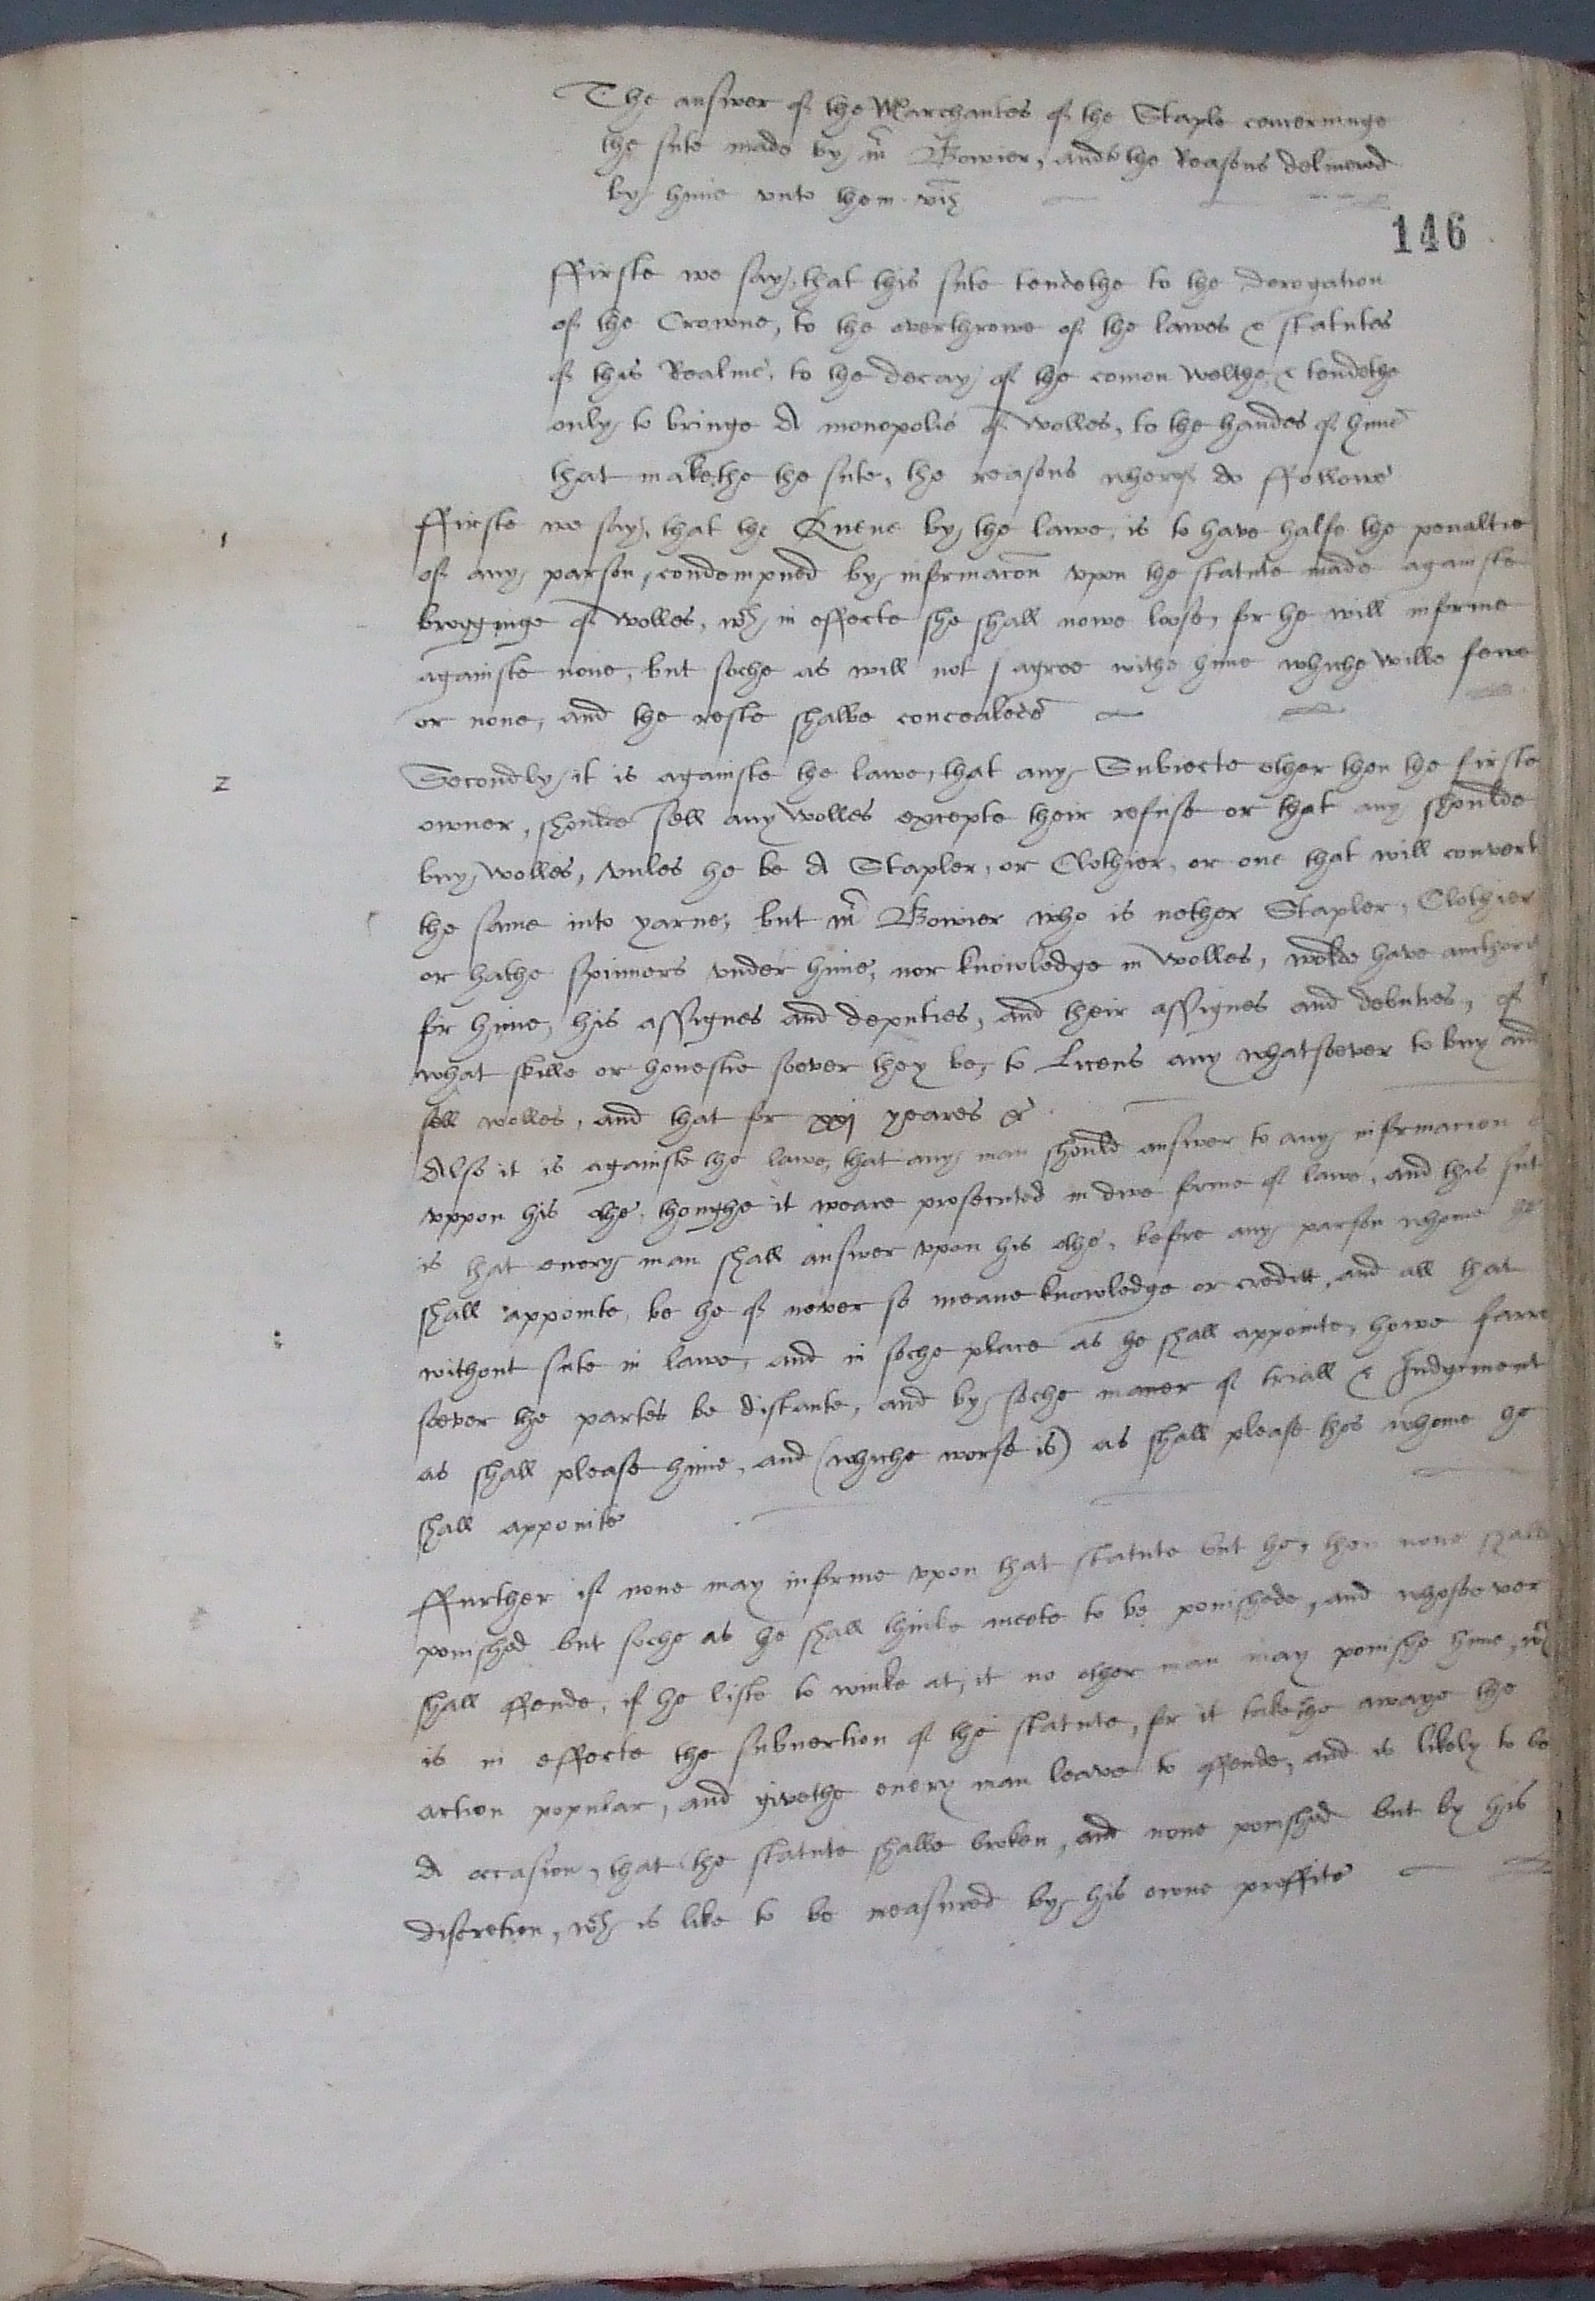 The answer of the Marchantes of the Staple concerninge
the sute made by mr Bowier, and the Reasons delivered
by hime unto them viz
146
ffirste we say, that this sute tendethe to the derogation
of the Crowne, to the overthrowe of the lawes & statutes
of this Realme, to the decay of the comon welthe, & tendethe
only to bringe A monopolie of wolles, to the handes of hime
that makethe the sute, the reasons wherof do ffollowe
1
ffirste we say, that the Quene by the lawe, is to have halfe the penaltie
of any parson, condempned by informacon upon the statute made againste
brogginge of wolles, wch in effecte she shall nowe loose, for he will informe
againste none, but soche as will not agree withe hime whiche wille fewe
or none, and the reste shalbe concealede
2
Secondly it is againste the lawe, that any Subiecte other then the firste
owner, shoulde sell any wolles excepte their refuse or that any shoulde
buy wolles, unles he be A Stapler, or Clothier, or one that will convert
the same into yarne, but mr Bowier who is nether Stapler, Clothier
or hathe spinners under hime, nor knowledge in wolles, wolde have
for hime, his assignes and deputies, and their assignes and debuties, of
what skille or honestie soever they be, to Licens any whatsoever to buy and
sell wolles, and that for xxj yeares &
Also it is againste the lawe, that any man should answer to any informacion
uppon his othe, thoughe it weare prosecuted in dwe forme of lawe, and this sut
is that every man shall answer upon his othe, before any parson whome he
shall appointe, be he of never so meane knowledge or creditt, and all that
without sute in lawe, and in soche place as he shall appointe, howe farre
soever the partes be distante, and by soche maner of triall & Iudgement
as shall please hime, and (whiche worse is) as shall please thos whome he
shall appointe
ffurther if none may informe upon that statute but he, then none shall
ponished but soche as he shall thinke meete to be ponishede, and whosoever
shall offende, if he liste to winke at, it no other man may ponishe hime, wch
is in effecte the subvertion of the statute, for it takethe awaye the
action popular, and givethe every man leave to offende, and is likely to be
A occasion, that the statute shalbe broken, and none ponished but by his
discretion, wch is like to be measured by his owne proffite